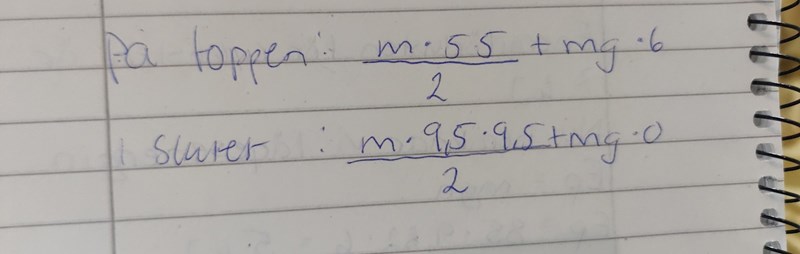 På toppen: m·55/2 + mg·6
I slutet : m·9,5·9,5/2 + mg·0